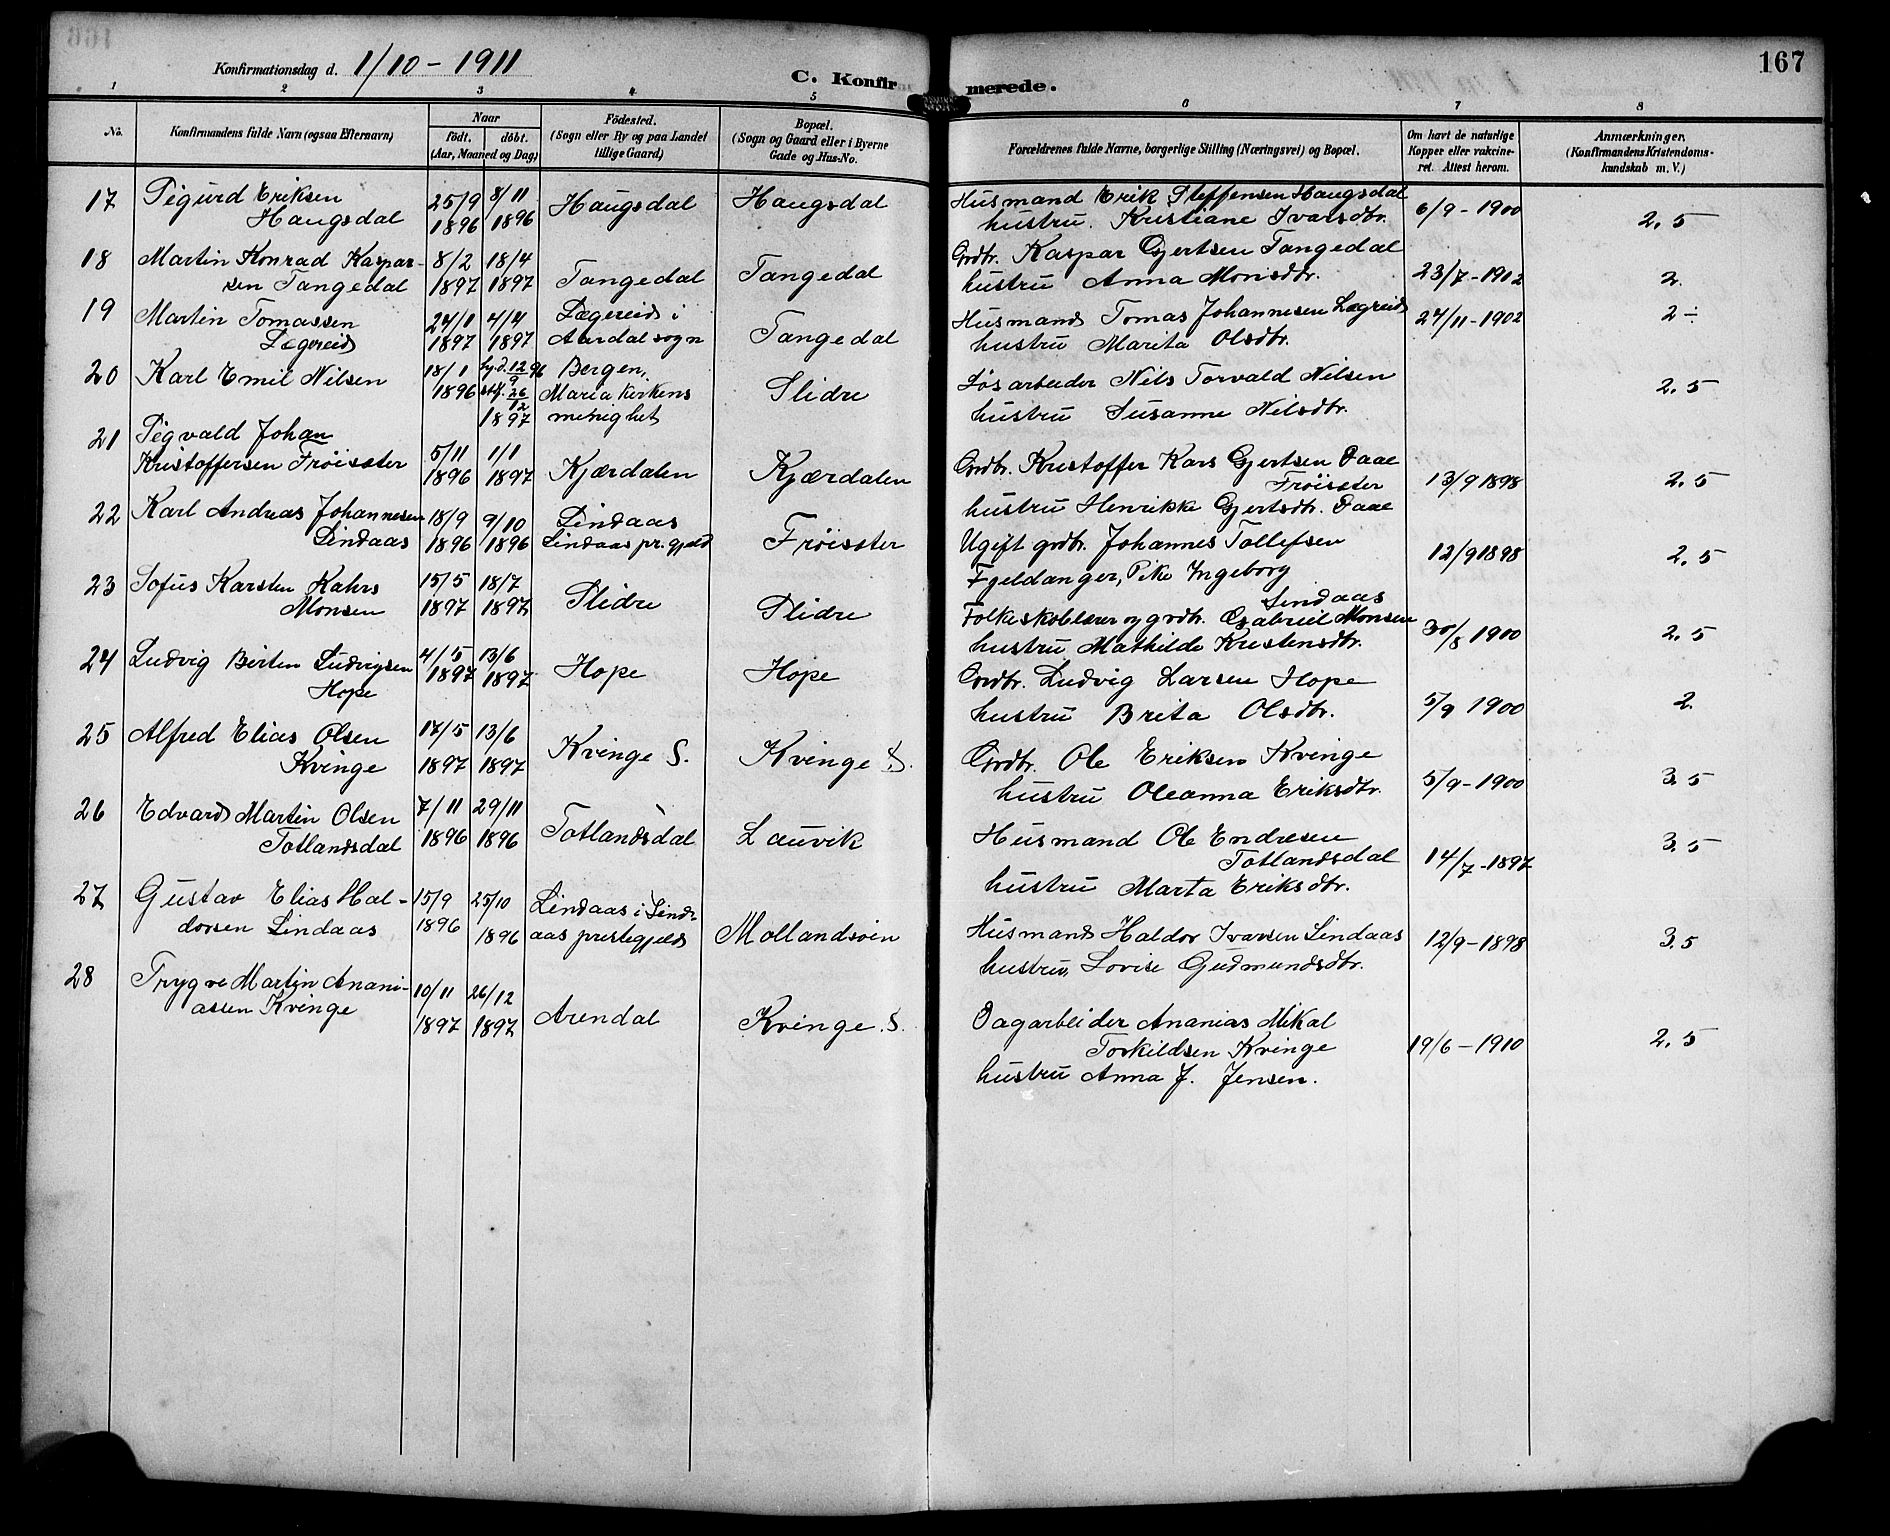 167
Konfirmationsdag d. 1/10 - 1911
C. Konfirmerede.
1 2 3 4 5 6 7 8
No. Konfirmandens fulde Navn (ogsaa Efternavn) Naar födt. döbt. (Aar, Maaned og Dag) Födested. (Sogn eller By og paa Landet tillige Gaard) Bopæl. (Sogn og Gaard eller i Byerne Gade og Hus-No. Forældrenes fulde Navne, borgerlige Stilling (Næringsvei) og Bopæl. Om havt de naturlige Kopper eller vakcineret. Attest herom. Anmærkninger. (Konfirmandens Kristendomskundskab m. V.)
17 Sigurd Eriksen 25/9 8/11 Haugsdal Haugsdal Husmand Erik Steffensen Haugsdal 6/9 - 1900 2.5
Haugsdal 1896 1896 hustru Kristiane Ivarsdtr.
18 Martin Konrad Kaspar- 8/2 18/4 Tangedal Tangedal Grdbr. Kaspar Gjertsen Tangedal 23/7 - 1902 2.
sen Tangedal 1897 1897 hustru Anna Monsdtr.
19 Martin Tomassen 24/1 4/4 Lægreid i Tangedal Husmand Tomas Johannesen Lægreid 24/11 - 1902 2 ÷
Lægreid 1897 1897 Aardal sogn hustru Marita Olsdtr.
20 Karl Emil Nilsen 18/1 hj.d. 12/9 96 Bergen, Slidre Løsarbeider Nils Torvald Nilsen 2.5
1896 stf. 26/12 Maria kirkens hustru Susanne Nilsdtr.
1897 menighet
21 Sigvald Johan 5/11 1/1 Kjærdalen Kjærdalen Grdbr. Kristoffer Kars Gjertsen Daae 13/9 1898 2.5
Kristoffersen Frøisæter 1896 1897 Frøisæter
hustru Henrikke Gjertsdtr. Daae
22 Karl Andreas Johannesen 18/9 9/10 Lindaas Frøisæter Ugift grdbr. Johannes Tollefsen 12/9 1898 2.5
Lindaas 1896 1896 Lindaas pr.gjeld Fjeldanger, Pike Ingeborg
Lindaas
23 Sofus Karsten Kahrs 15/5 18/7 Slidre Slidre Folkeskolelærer og grdbr. Gabriel Monsen 30/8 1900 2.5
Monsen 1897 1897 hustru Mathilde Kristensdtr.
24 Ludvig Bertin Ludvigsen 4/5 13/6 Hope Hope Grdbr. Ludvig Larsen Hope 5/9 1900 2.
Hope 1897 1897 hustru Brita Olsdtr.
25 Alfred Elias Olsen 17/5 13/6 Kvinge S. Kvinge S. Grdbr. Ole Eriksen Kvinge 5/9 - 1900 3.5
Kvinge 1897 1897 hustru Oleanna Eriksdtr.
26 Edvard Martin Olsen 7/11 29/11 Totlandsdal Lauvik Husmand Ole Endresen 14/7 - 1897 3.5
Totlandsdal 1896 1896 Totlandsdal
hustru Marta Eriksdtr.
27 Gustav Elias Hal- 15/9 25/10 Lindaas i Lind- Mollandsvin Husmand Haldor Ivarsen Lindaas 12/9 - 1898 3.5
dorsen Lindaas 1896 1896 aas prestegjeld hustru Lovise Gudmundsdtr.
28 Trygve Martin Anani- 10/11 26/12 Arendal Kvinge S. Dagarbeider Ananias Mikal 19/6 - 1910 2.5
assen Kvinge 1897 1897 Torkildsen Kvinge
hustru Anna J. Jensen.